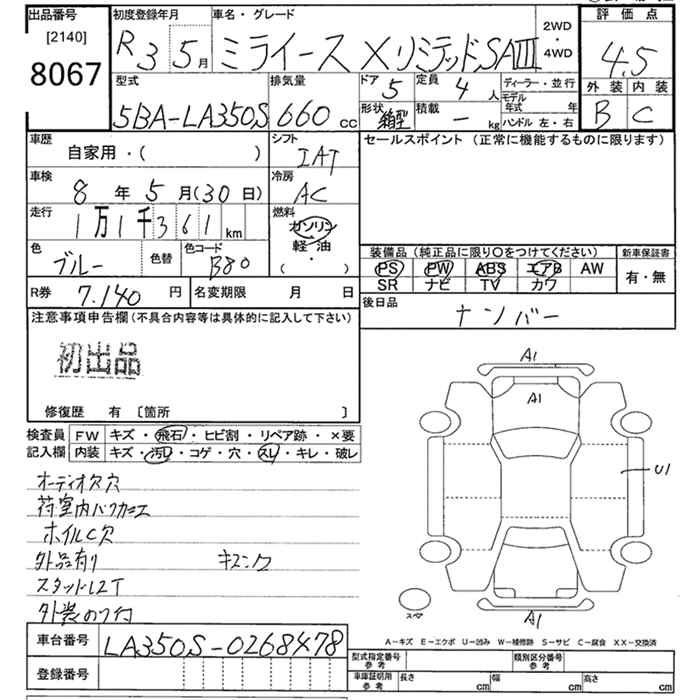 出品番号
[2140]
8067
初度登録年月
R 3 5月
車名・グレード
ミライース XリミテッドSAⅢ
2WD
・
4WD
評価点
4.5
外装 内装
B C
型式
5BA-LA350S
排気量
660 cc
ドア 5
定員 4 人
ディーラー・並行
モデル年式 年
ハンドル 左・右
形状 箱型
積載 - kg
車歴
自家用・( )
シフト
IAT
セールスポイント (正常に機能するものに限ります)
車検
8 年 5 月(30日)
冷房
AC
走行
1万1千361 km
燃料
ガソリン
軽・油
( ・ )
色
ブルー
色替
色コード
B80
装備品(純正品に限り○をつけてください)
新車保証書
PS PW ABS エアB AW
SR ナビ TV カワ
有・無
R券 7.140 円
名変期限 月 日
後日品
ナンバー
注意事項申告欄(不具合内容等は具体的に記入して下さい)
初出品
修復歴 有 [箇所 ]
検査員
記入欄
FW キズ・飛石・ヒビ割・リペア跡・×要
内装 キズ・汚レ・コゲ・穴・スレ・キレ・破レ
オーディオ欠穴
ホイルC欠
外品有り
A1
A1
U1
A1
スペア
A-キズ E-エクボ U-凹み W-補修跡 S-サビ C-腐食 XX-交換済
車台番号 LA350S-0268478
登録番号
型式指定番号
参考
類別区分番号
参考
車庫証明用
参考
長さ cm
幅 cm
高さ cm